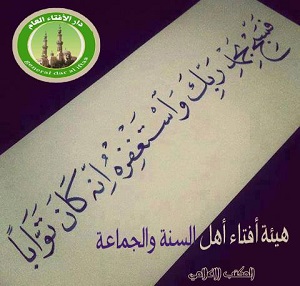 دار الافتاء العام
general dar al iftaa
فسبح بحمد ربك وَاسْتَغْفِرْهُ إِنَّهُ كَانَ تَوَّاباً
هيئة أفتاء أهل السنة والجماعة
المكتب الإعلامي